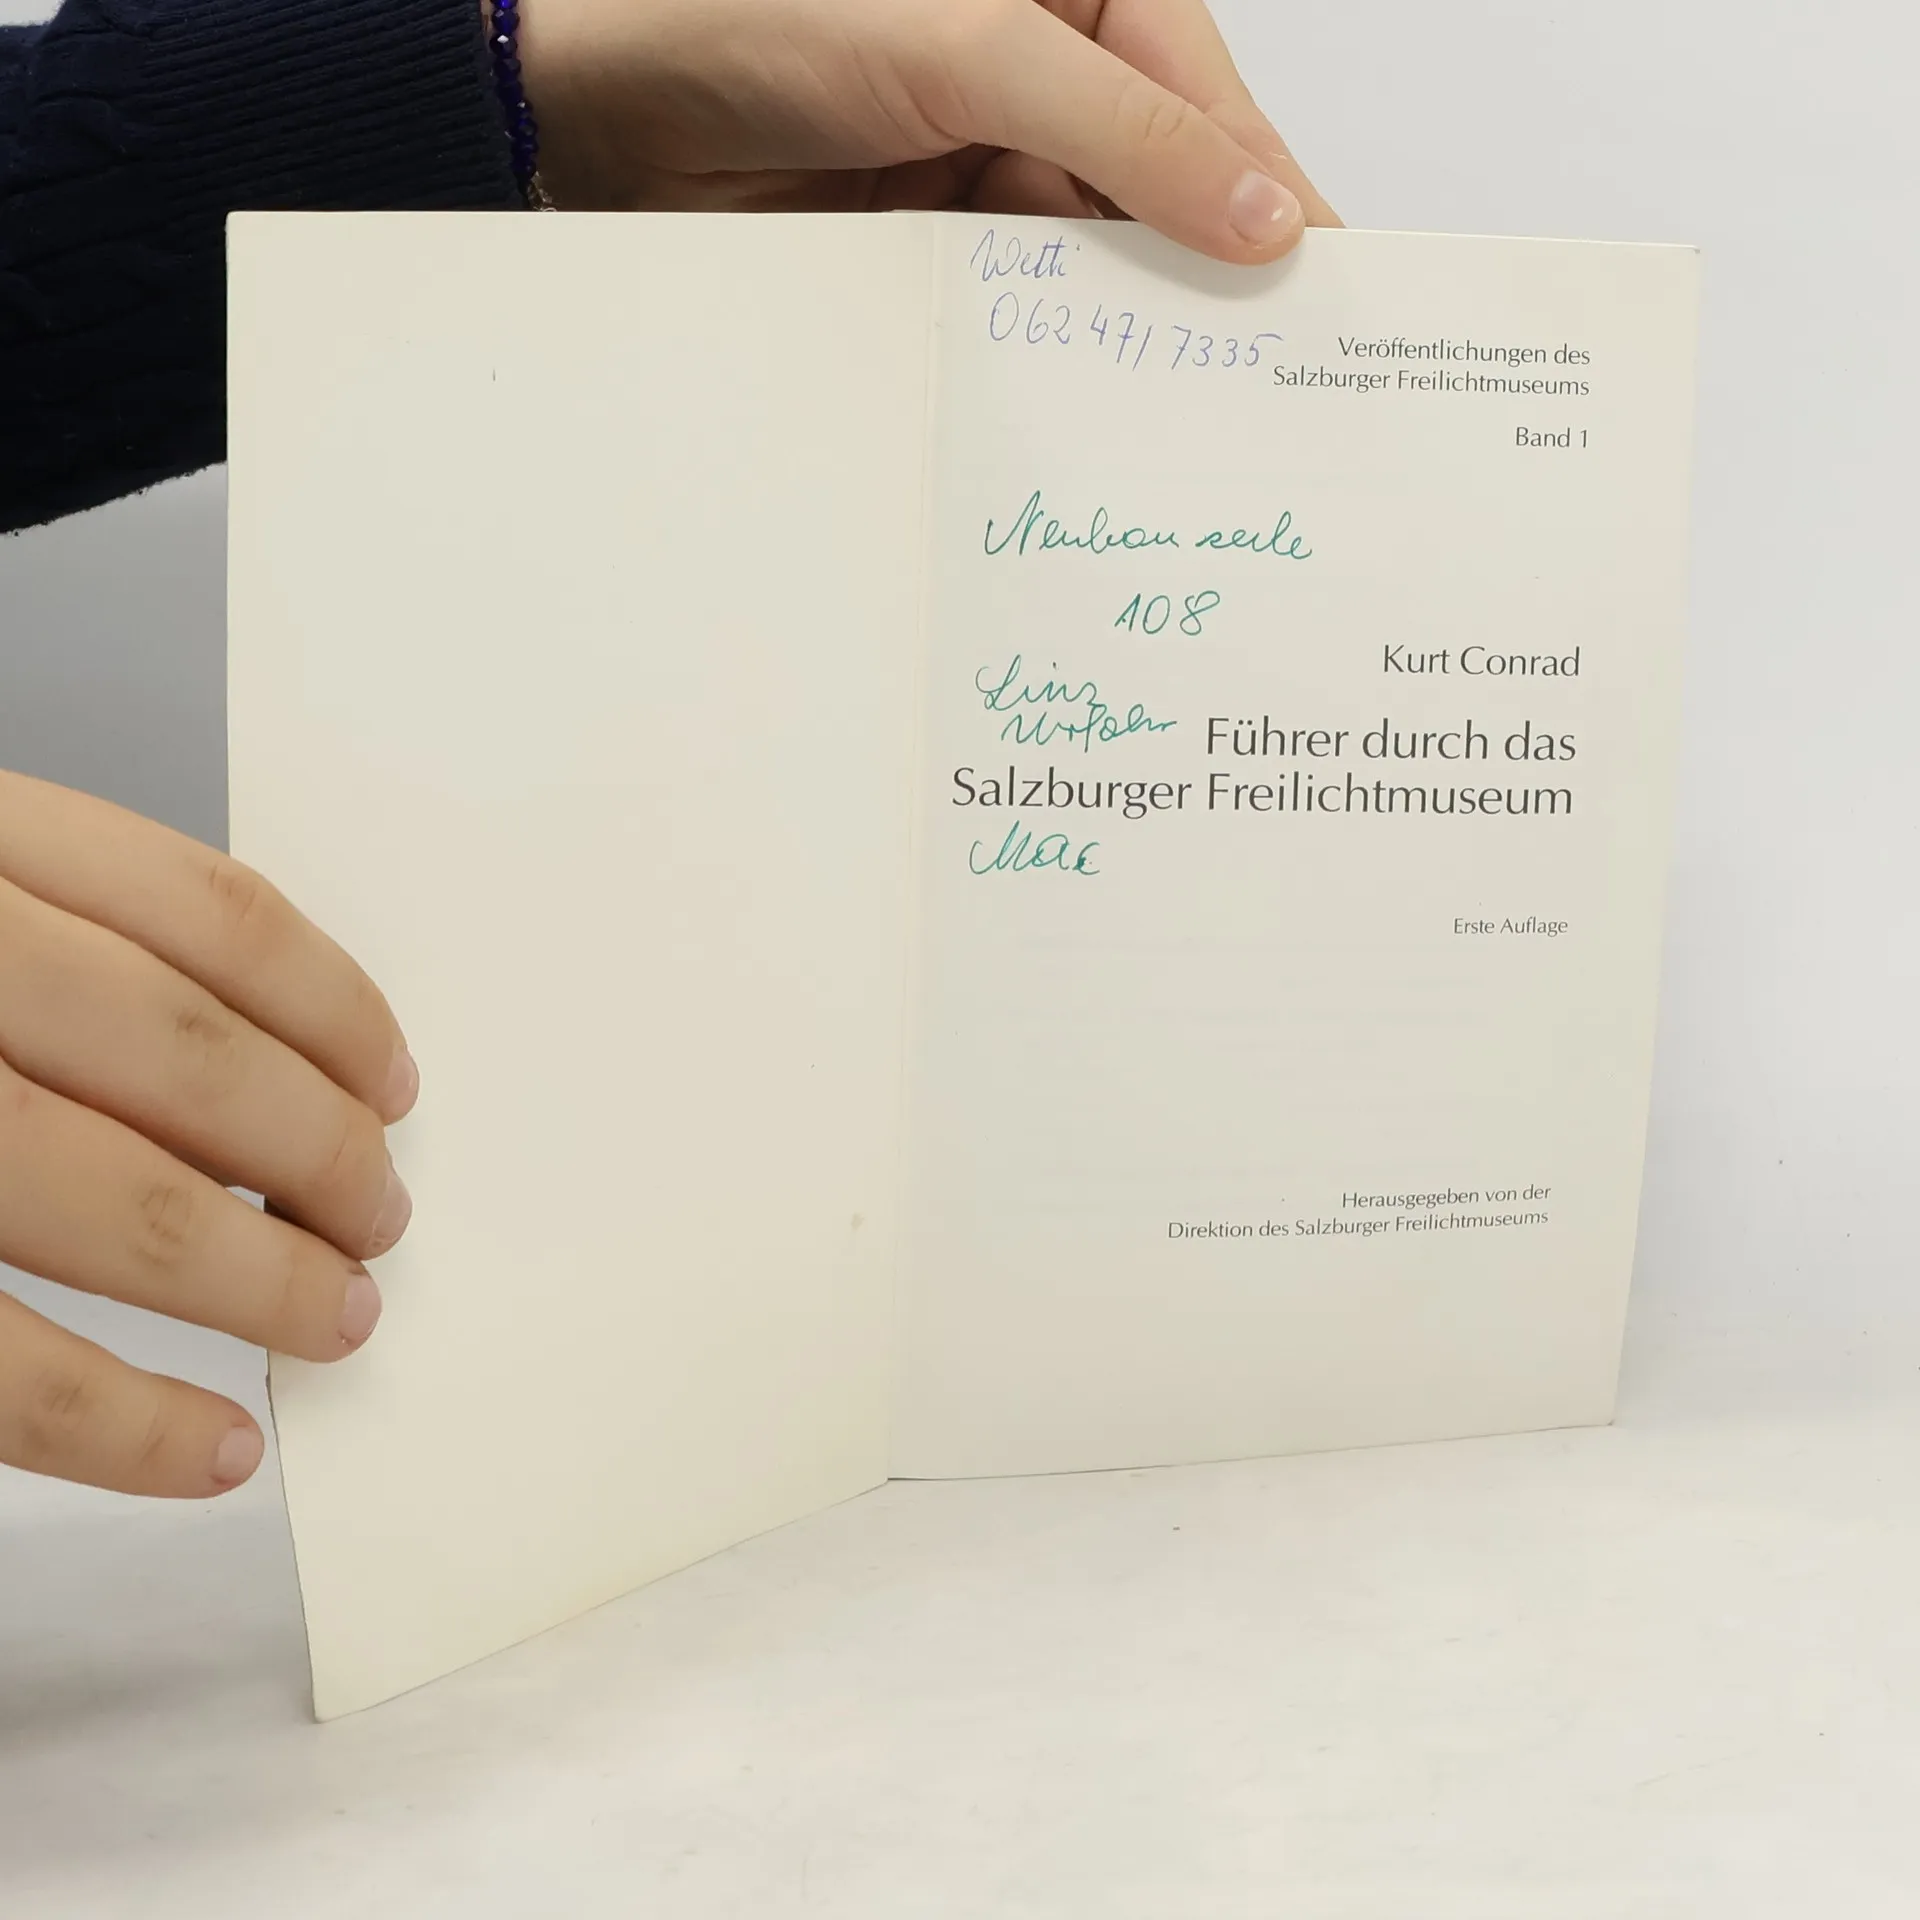 Wetti
06247/7335
Veröffentlichungen des
Salzburger Freilichtmuseums
Band 1
Neubauzeile
108
Kurt Conrad
Linz
Urfahr
Führer durch das
Salzburger Freilichtmuseum
Erste Auflage
Herausgegeben von der
Direktion des Salzburger Freilichtmuseums